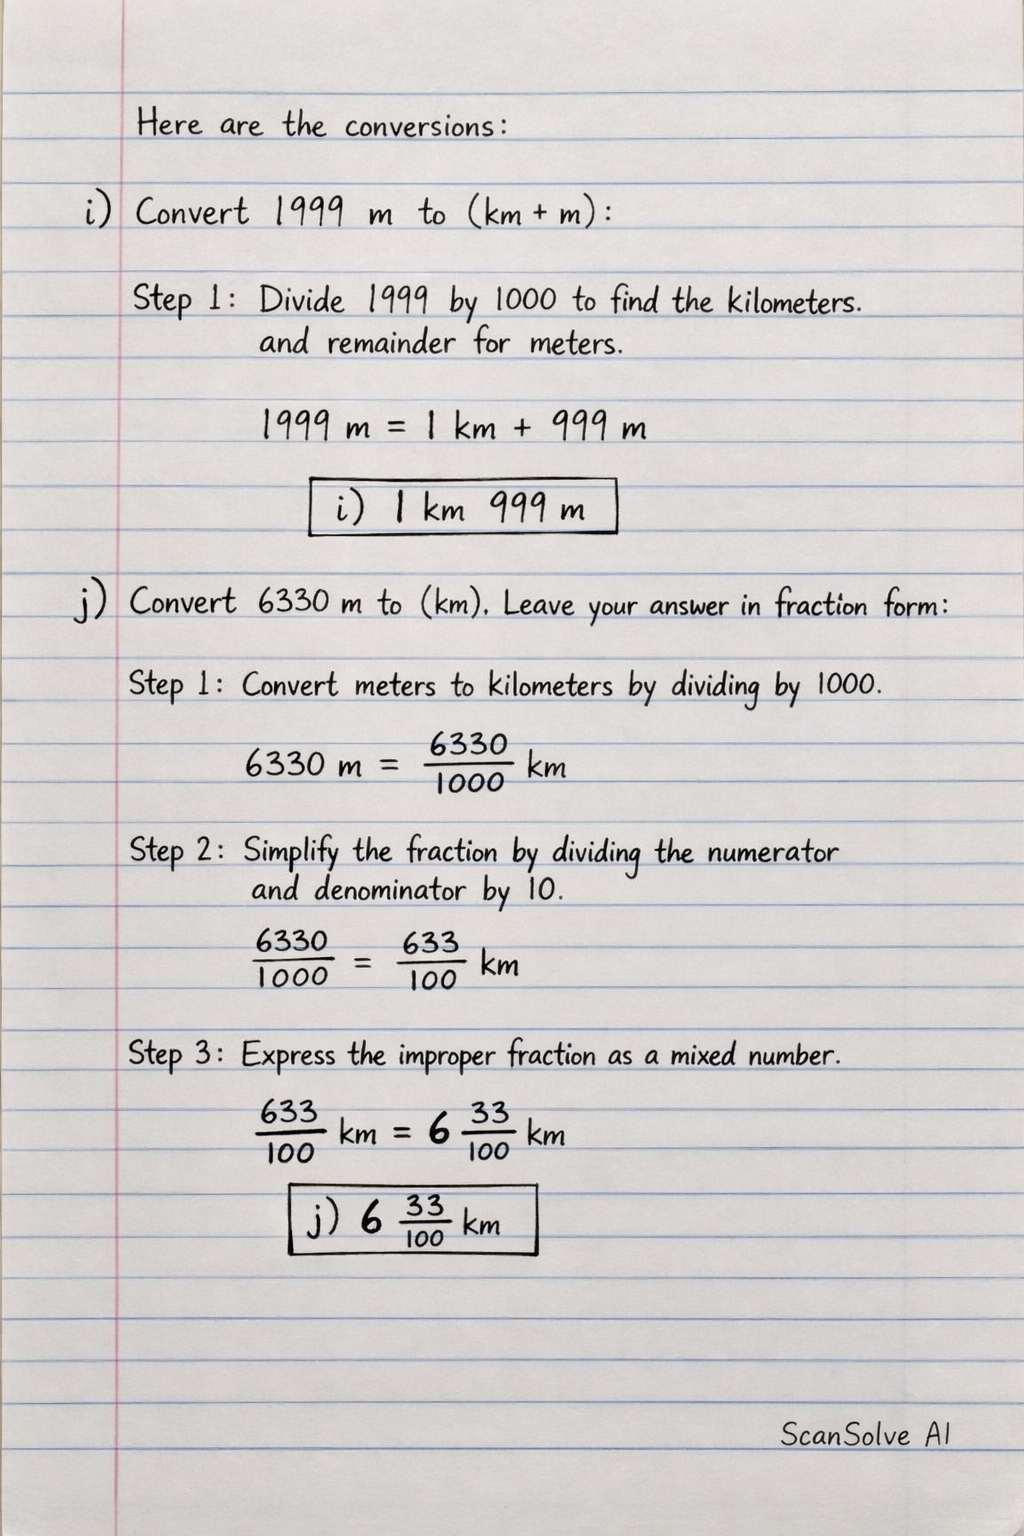 Here are the conversions:
i) Convert 1999 m to (km + m):
Step 1: Divide 1999 by 1000 to find the kilometers.
and remainder for meters.
1999 m = 1 km + 999 m
i) 1 km 999 m
j) Convert 6330 m to (km). Leave your answer in fraction form:
Step 1: Convert meters to kilometers by dividing by 1000.
6330 m = 6330/1000 km
Step 2: Simplify the fraction by dividing the numerator
and denominator by 10.
6330/1000 = 633/100 km
Step 3: Express the improper fraction as a mixed number.
633/100 km = 6 33/100 km
j) 6 33/100 km
ScanSolve AI